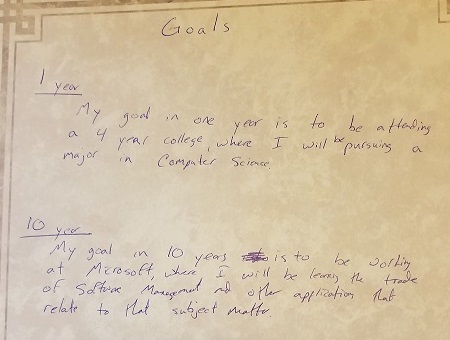 Goals
1 year
My goal in one year is to be attending
a 4 year college, where I will be pursuing a
major in Computer Science.
10 year
My goal in 10 years is to be working
at Microsoft, where I will be learning the trade
of Software Management and other application that
relate to that subject matter.